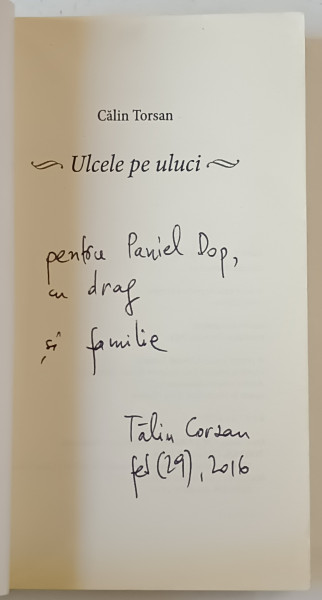 Călin Torsan
Ulcele pe uluci
pentru Paniel Dop,
cu drag
și familie
Tălin Corsan
feb (29), 2016